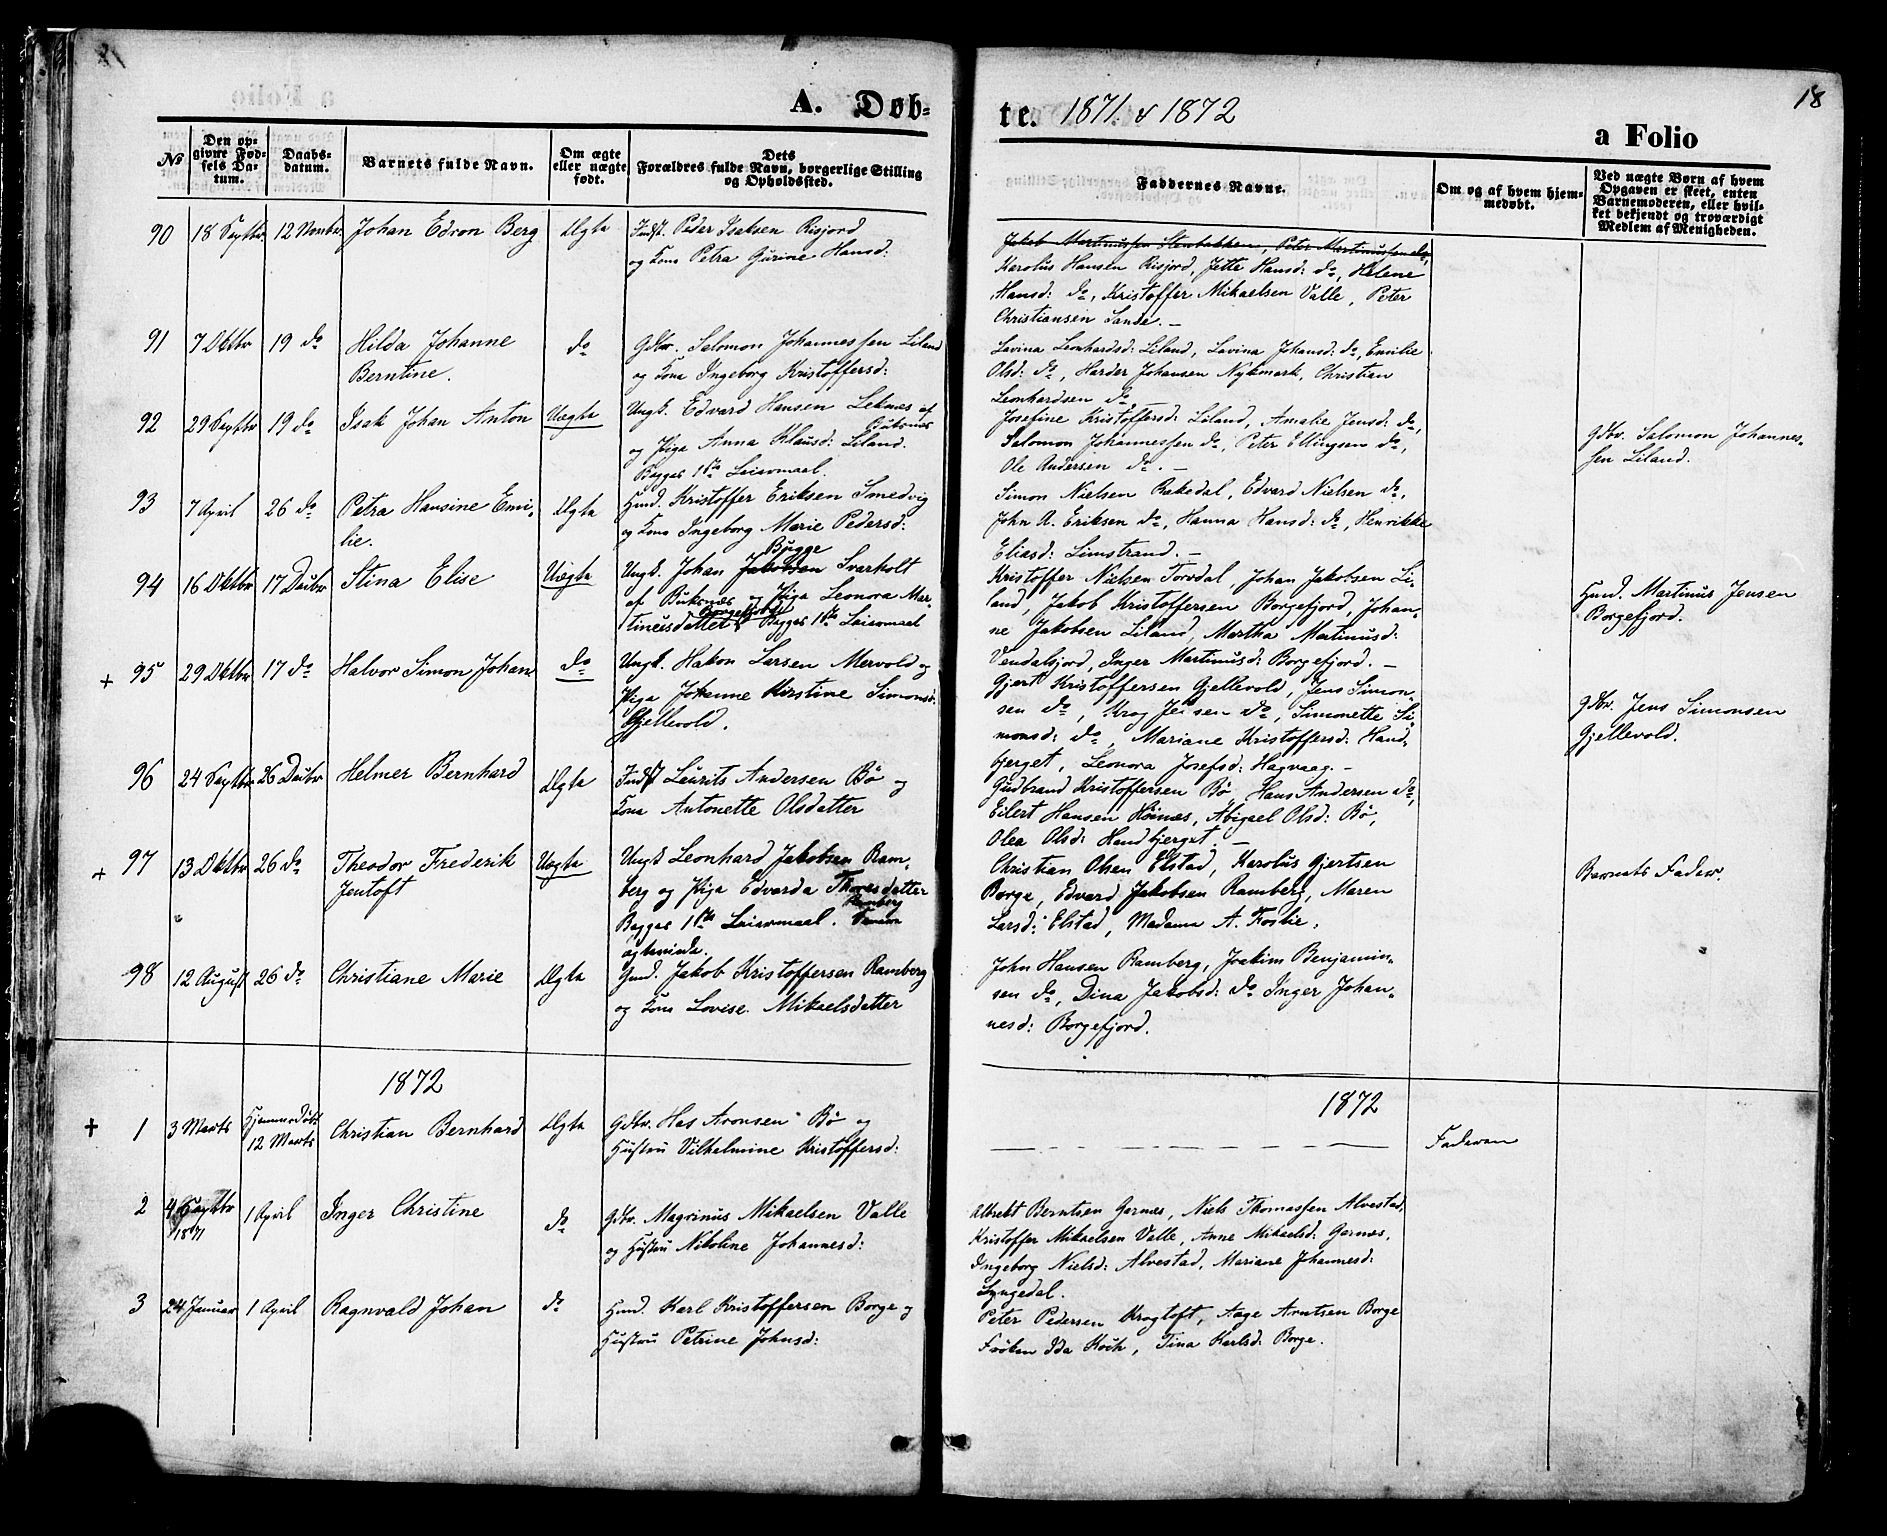 A. Døb-
te. 1871 & 1872
18
a Folio
No
Den op-
givne Fød-
sels Da-
tum.
Daabs-
datum.
Barnets fulde Navn.
Om ægte
eller uægte
født.
Dets
Forældres fulde Navn, borgerlige Stilling
og Opholdssted.
Faddernes Navne.
Om og af hvem hjem-
medøbt.
Ved uægte Børn af hvem
Opgaven er skeet, enten
Barnemoderen, eller hvil-
ket bekjendt og troværdigt
Medlem af Menigheden.
90 18 Septbr 12 Novbr Johan Edvon Berg Ægte Indst. Peder Isaksen Risjord
og Kone Petra Gurine Hansd:
Jakob Martinussen Stenbakken, Peter Martinussen do,
Karolus Hansen Risjord, Jette Hansd: do, Helene
Hansd: do, Kristoffer Mikaelsen Valle, Peter
Christiansen Sande. -
91 7 Oktbr 19 do Hilda Johanne
Berntine. do Gdbr. Salomon Johannessen Liland
og Kone Ingeborg Kristoffersd:
Lavina Leonhardsd: Liland, Lavina Johansd: do, Emilie
Olsd: do, Harder Johansen Nykmark, Christian
Leonhardsen do
92 29 Septbr 19 do Isak Johan Anton Uægte Ungk. Edvard Hansen Leknes af
Buksnes
og Pige Anna Klausd: Liland.
Begges 1ste Leiermaal.
Josefine Kristoffersd: Liland, Amalie Jensd: do,
Salomon Johannessen do, Peter Ellingsen do,
Ole Andersen do. -
Gdbr. Salomon Johannes-
sen Liland.
93 7 April 26 do Petra Hansine Emi-
lie. Ægte Hmd. Kristoffer Eriksen Smedvig
og Kone Ingeborg Marie Pedersd:
Simon Nielsen Rekedal, Edvard Nielsen do,
John A. Eriksen do, Hanna Hansd: do, Henrikke
Eliasd: Limstrand. -
94 16 Oktbr 17 Decbr Stina Elise Uægte Ungk. Johan Jakobsen Bygge Svarholt
af Buksnes og Pige Leonora Mar-
tinusdatter Borgefjord Begges 1ste Leiermaal
Kristoffer Nielsen Torvdal, Johan Jakobsen Li-
land, Jakob Kristoffersen Borgefjord, Johan-
ne Jakobsen Liland, Martha Martinusd:
Vendalsjord, Inger Martinusd: Borgefjord. -
Hmd. Martinus Jensen
Borgefjord.
+ 95 29 Oktbr 17 do Halvor Simon Johan do Ungk. Hakon Larsen Mervold og
Pige Johanne Kirstine Simonsd:
Gjellevold.
Gjert Kristoffersen Gjellevold, Jens Simon-
sen do, Krog Jensen do, Simonette Si-
monsd: do, Mariane Kristoffersd: Hand-
bjerget, Leonora Josefsd: Hagvaag. -
Gdbr. Jens Simonsen
Gjellevold.
96 24 Septbr 26 Decbr Helmer Bernhard Ægte Indst Laurits Andersen Bø og
Kone Antonette Olsdatter
Gudbrand Kristoffersen Bø, Hans Andersen do,
Eilert Hansen Hornæs, Abigael Olsd: Bø,
Olea Olsd: Handbjerget. -
+ 97 13 Oktbr 26 do Theodor Frederik
Jentoft Uægte Ungk Leonhard Jakobsen Ram-
berg og Pige Edvarda Thoresdatter
Ramberg
Begges 1ste Leiermaal.
Christian Olsen Elstad, Karolus Gjertsen
Borge, Edvard Jakobsen Ramberg, Maren
Larsd: Elstad, Madame A. Foslie.
Barnets Fader.
98 12 August 26 do Christiane Marie Ægte Hmd. Jakob Kristoffersen Ramberg
og Kone Lovise Mikaelsdatter
John Hansen Ramberg, Joakim Benjamin-
sen do, Dina Jakobsd: do Inger Johan-
nesd: Borgefjord.
1872
1872
+ 1 3 Marts Hjemmedøbt
12 Marts Christian Bernhard Ægte Gdbr. Has Aronsen Bø og
Hustru Vilhelmine Kristoffersd:
Faderen
2 4 Septbr
1871 1 April Inger Christine do Gdbr. Magrinus Mikaelsen Valle
og Hustru Nikoline Johannesd:
Albrekt Berntsen Gernæs, Niels Thomassen Alvestad,
Kristoffer Mikaelsen Valle, Anne Mikaelsd: Gernæs,
Ingeborg Nielsd: Alvestad, Mariane Johannesd:
Lyngedal.
3 24 Januar 1 April Ragnvald Johan do Hmd. Karl Kristoffersen Borge og
Hustru Petrine Johnsd:
Peter Pedersen Krogtoft, Aage Arntsen Borge
Frøken Ida Koch, Tina Karlsd: Borge.